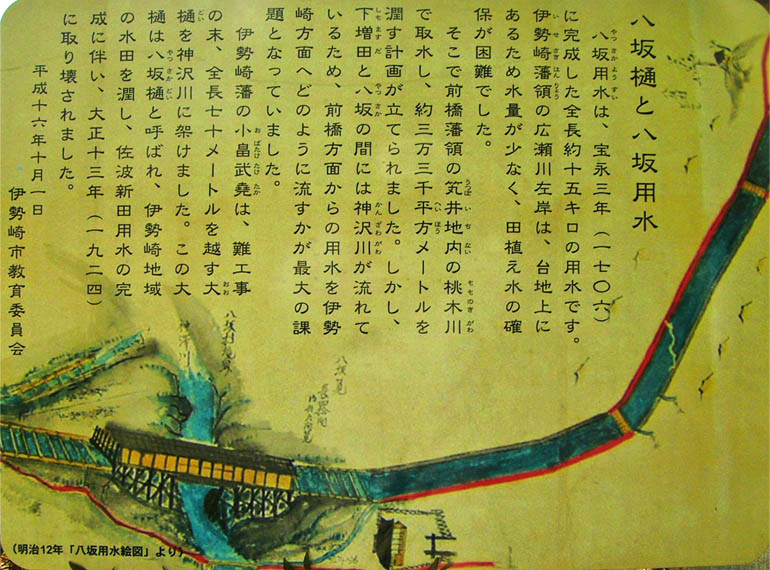 八坂樋と八坂用水
八坂用水は、宝永三年（一七〇六）
に完成した全長約十五キロの用水です。
伊勢崎藩領の広瀬川左岸は、台地上に
あるため水量が少なく、田植え水の確
保が困難でした。
そこで前橋藩領の笂井地内の桃木川
で取水し、約三万三千平方メートルを
潤す計画が立てられました。しかし、
下増田と八坂の間には神沢川が流れて
いるため、前橋方面からの用水を伊勢
崎方面へどのように流すかが最大の課
題となっていました。
伊勢崎藩の小畠武堯は、難工事
の末、全長七十メートルを越す大
樋を神沢川に架けました。この大
樋は八坂樋と呼ばれ、伊勢崎地域
の水田を潤し、佐波新田用水の完
成に伴い、大正十三年（一九二四）
に取り壊されました。
平成十六年十月一日
伊勢崎市教育委員会
神澤川
（明治12年「八坂用水絵図」より）